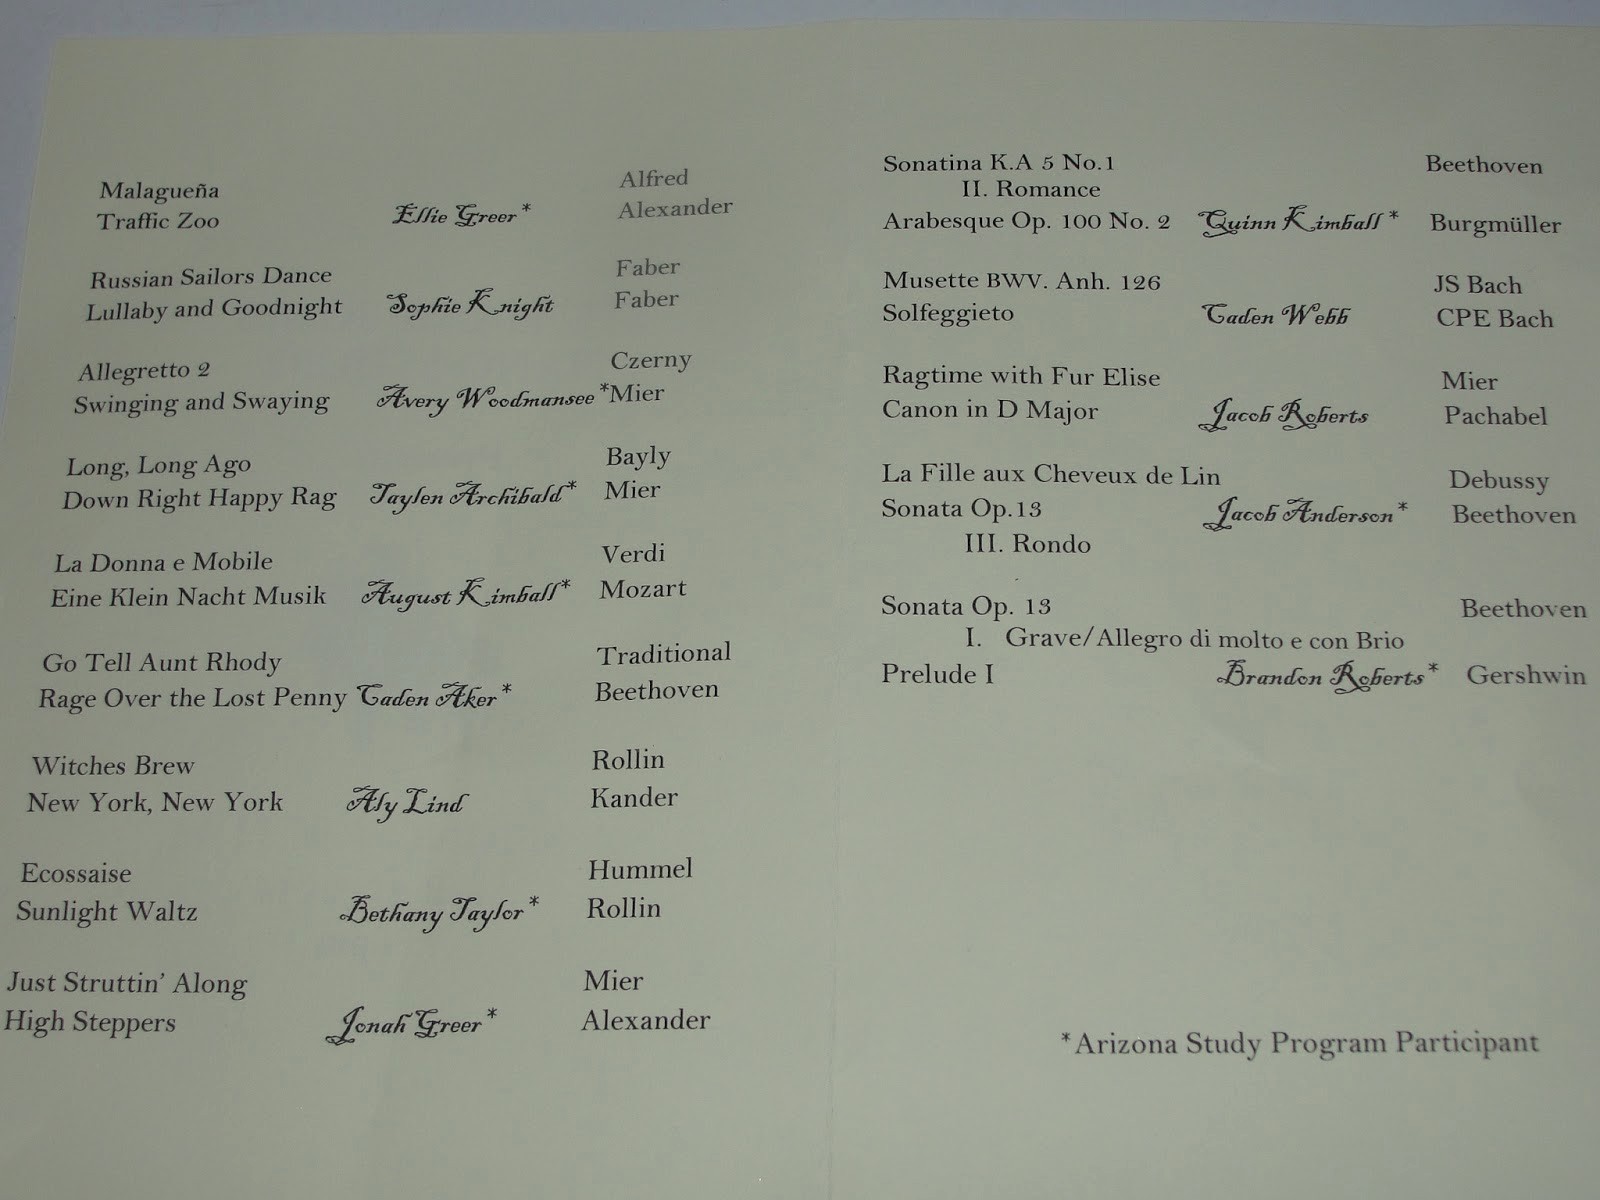 Malagueña Alfred
Traffic Zoo Ellie Greer* Alexander
Russian Sailors Dance Faber
Lullaby and Goodnight Sophie Knight Faber
Allegretto 2 Czerny
Swinging and Swaying Avery Woodmansee* Mier
Long, Long Ago Bayly
Down Right Happy Rag Taylen Archibald* Mier
La Donna e Mobile Verdi
Eine Klein Nacht Musik August Kimball* Mozart
Go Tell Aunt Rhody Traditional
Rage Over the Lost Penny Caden Aker* Beethoven
Witches Brew Rollin
New York, New York Aly Lind Kander
Ecossaise Hummel
Sunlight Waltz Bethany Taylor* Rollin
Just Struttin' Along Mier
High Steppers Jonah Greer* Alexander
Sonatina K.A 5 No.1 Beethoven
II. Romance
Arabesque Op. 100 No. 2 Quinn Kimball* Burgmüller
Musette BWV. Anh. 126 JS Bach
Solfeggieto Caden Webb CPE Bach
Ragtime with Fur Elise Mier
Canon in D Major Jacob Roberts Pachabel
La Fille aux Cheveux de Lin Debussy
Sonata Op.13 Jacob Anderson* Beethoven
III. Rondo
Sonata Op. 13 Beethoven
I. Grave/Allegro di molto e con Brio
Prelude I Brandon Roberts* Gershwin
*Arizona Study Program Participant